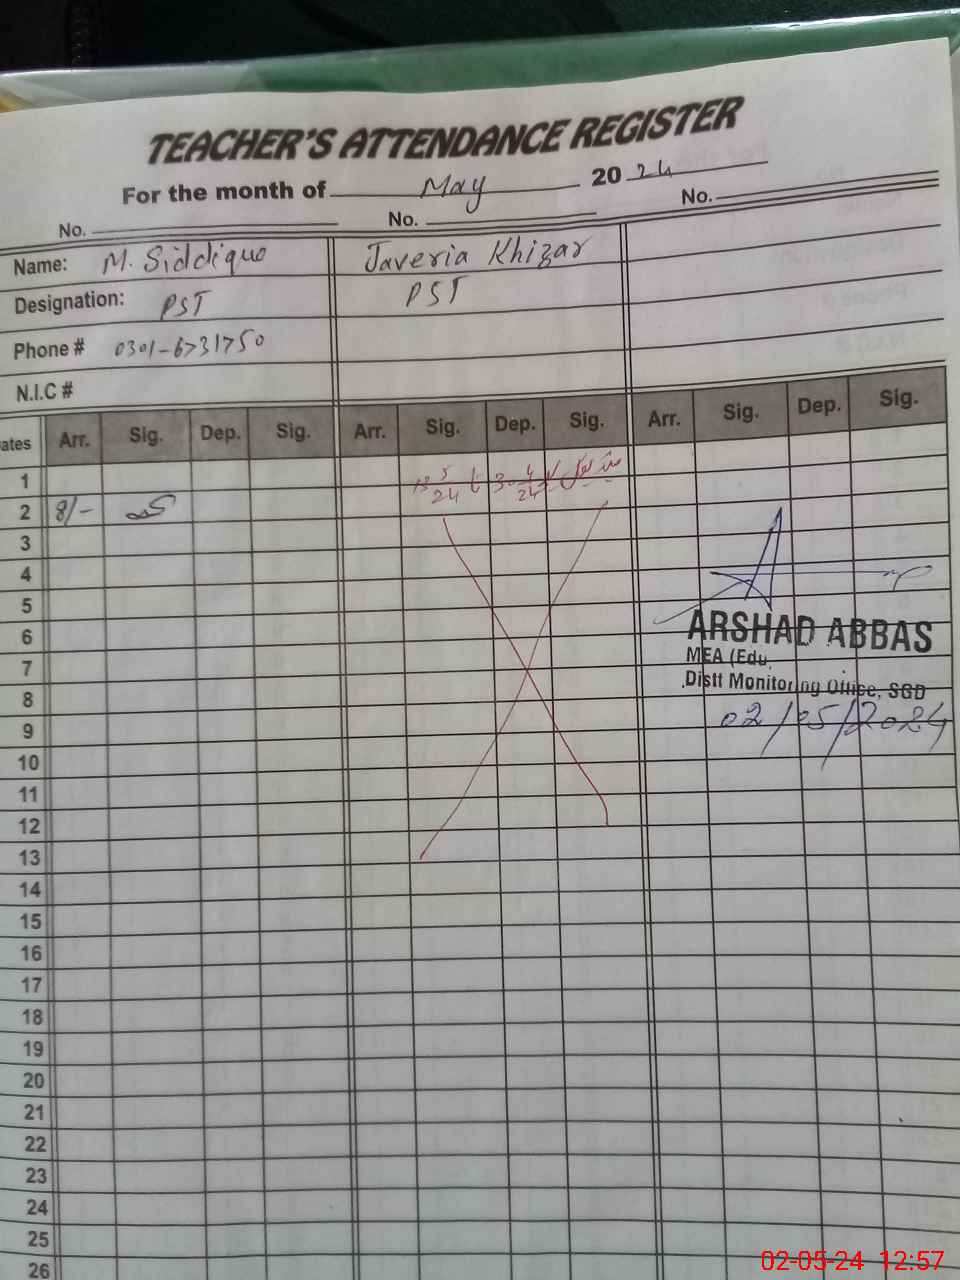 TEACHER'S ATTENDANCE REGISTER
For the month of May 2024
No. No. No.
Name: M. Siddique Javeria Khizar
Designation: PST PST
Phone # 0301-6731750
N.I.C #
ates Arr. Sig. Dep. Sig. Arr. Sig. Dep. Sig. Arr. Sig. Dep. Sig.
1 30 4/24 تا 13 5/24
2 8/-
3
4
5
6
ARSHAD ABBAS
MEA (Edu
7
Distt Monitoring Office, SGD
8
02/05/2024
9
10
11
12
13
14
15
16
17
18
19
20
21
22
23
24
25
26
02-05-24 12:57